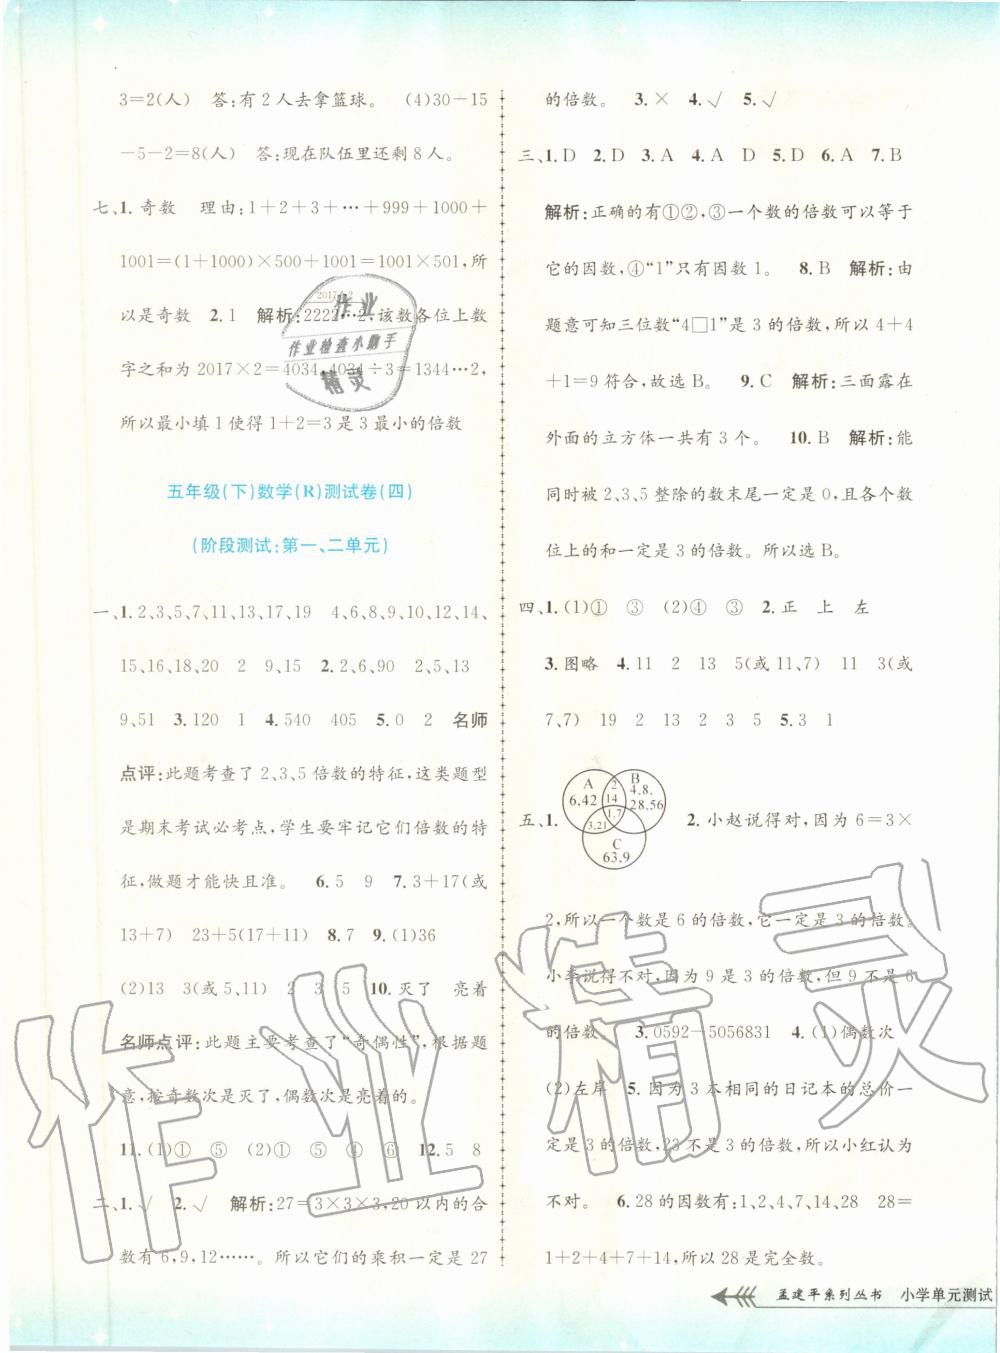 3=2(人)　答:有2人去拿篮球。　(4)30-15
-5-2=8(人)　答:现在队伍里还剩8人。
七、1. 奇数　理由:1+2+3+…+999+1000+
1001=(1+1000)×500+1001=1001×501,所
以是奇数　2. 1　解析:2222…2,该数各位上数
字之和为2017×2=4034,4034÷3=1344…2,
所以最小填1使得1+2=3是3最小的倍数
五年级(下)数学(R)测试卷(四)
(阶段测试:第一、二单元)
一、1. 2、3、5、7、11、13、17、19　4、6、8、9、10、12、14、
15、16、18、20　2　9、15　2. 2、6、90　2、5、13
9、51　3. 120　1　4. 540　405　5. 0　2　名师
点评:此题考查了2、3、5倍数的特征,这类题型
是期末考试必考点,学生要牢记它们倍数的特
征,做题才能快且准。　6. 5　9　7. 3+17(或
13+7)　23+5(17+11)　8. 7　9. (1)36
(2)13　3(或5、11)　2　3　5　10. 灭了　亮着
名师点评:此题主要考查了“奇偶性”,根据题
意,按奇数次是灭了,偶数次是亮着的。
11. (1)①　⑤　(2)①　⑤　④　⑥　12. 5　8
二、1. √　2. √　解析:27=3×3×3,20以内的合
数有6,9,12……。所以它们的乘积一定是27
的倍数。　3. ×　4. √　5. √
三、1. D　2. D　3. A　4. A　D　5. D　6. A　7. B
解析:正确的有①②,③一个数的倍数可以等于
它的因数,④“1”只有因数1。　8. B　解析:由
题意可知三位数“4□1”是3的倍数,所以4+4
+1=9符合,故选B。　9. C　解析:三面露在
外面的立方体一共有3个。　10. B　解析:能
同时被2、3、5整除的数末尾一定是0,且各个数
位上的和一定是3的倍数。所以选B。
四、1. (1)①　③　(2)④　③　2. 正　上　左
3. 图略　4. 11　2　13　5(或11、7)　11　3(或
7、7)　19　2　13　2　3　5　5. 3　1
A　2　B
6,42　14　4,8,
28,56
1,7
3,21
C
63,9
五、1.　2. 小赵说得对,因为6=3×
2,所以一个数是6的倍数,它一定是3的倍数。
小李说得不对,因为9是3的倍数,但9不是6
的倍数　3. 0592-5056831　4. (1)偶数次
(2)左岸　5. 因为3本相同的日记本的总价一
定是3的倍数,23不是3的倍数,所以小红认为
不对。　6. 28的因数有:1、2、4、7、14、28　28=
1+2+4+7+14,所以28是完全数。
孟建平系列丛书　小学单元测试
2017个2
作业
作业检查小助手
精灵
作业精灵